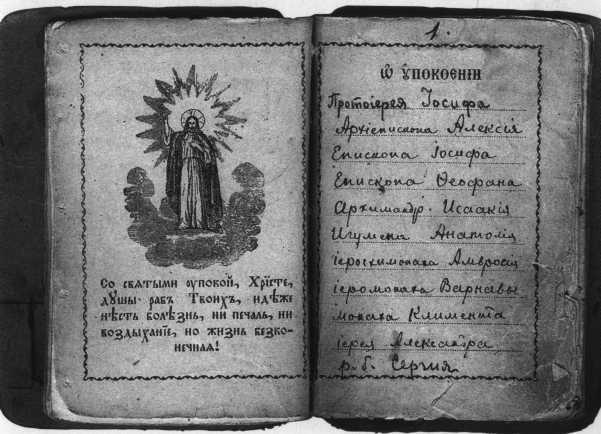 Со святыми ѹпокой, Хрїсте,
дѹшы рабъ Твоихъ, идѣже
нѣсть болѣзнь, ни печаль, ни
воздыханїе, но жизнь безко-
нечная!
1.
Ѡ ѹпокоенїи
Протоіерея Іосифа
Архіепископа Алексія
Епископа Іосифа
Епископа Ѳеофана
Архимандр. Исаакія
Игумена Анатолія
іеросхимонаха Амвросія
іеромонаха Варнавы
монаха Климента
іерея Александра
р. б. Сергия